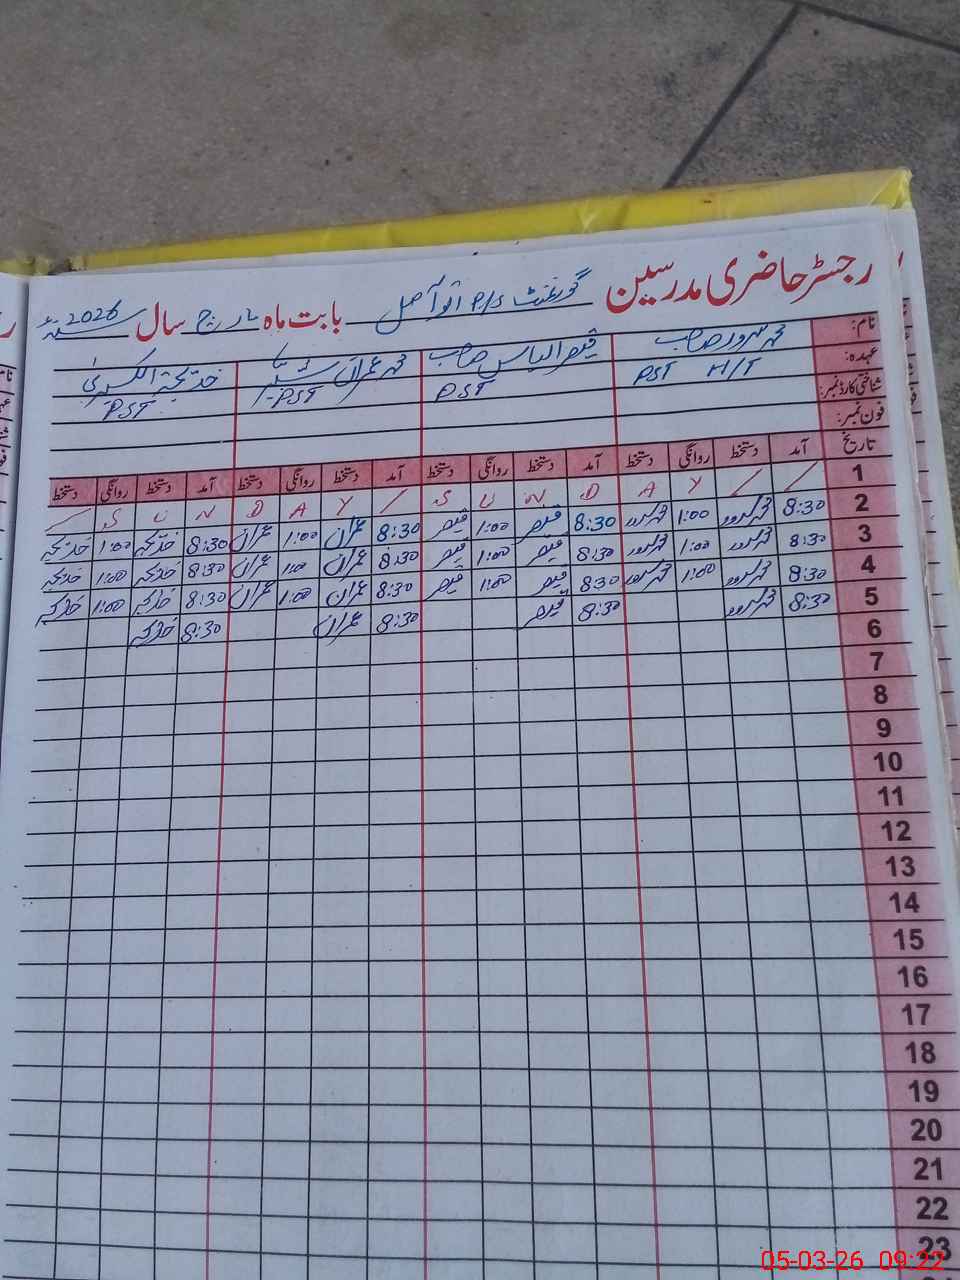 رجسٹر حاضری مدرسین گورنمنٹ P/S بابت ماہ مارچ سال 2026
نام: محمد سرور صاحب قیصر الیاس صاحب محمد عمران خدیجۃ الکبریٰ
عہدہ: PST H/T PST PST PST
شناختی کارڈ نمبر:
فون نمبر:
تاریخ آمد دستخط روانگی دستخط آمد دستخط روانگی دستخط آمد دستخط روانگی دستخط آمد دستخط روانگی دستخط
1 / / Y A D N U S / Y A D N U S /
2 8:30 محمد سرور 1:00 محمد سرور 8:30 قیصر 1:00 قیصر 8:30 عمران 1:00 عمران 8:30 خدیجہ 1:00 خدیجہ
3 8:30 محمد سرور 1:00 محمد سرور 8:30 قیصر 1:00 قیصر 8:30 عمران 1:00 عمران 8:30 خدیجہ 1:00 خدیجہ
4 8:30 محمد سرور 1:00 محمد سرور 8:30 قیصر 1:00 قیصر 8:30 عمران 1:00 عمران 8:30 خدیجہ 1:00 خدیجہ
5 8:30 محمد سرور 8:30 قیصر 8:30 عمران 8:30 خدیجہ
6
7
8
9
10
11
12
13
14
15
16
17
18
19
20
21
22
23
05-03-26 09:22